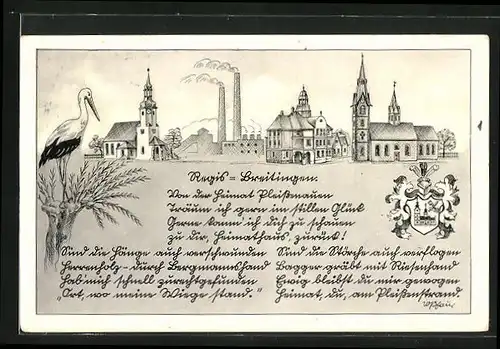 Regis-Breitingen.
Von der Heimat Pleißenauen
Träum ich gern im stillen Glück
Gerne kann ich dich zu schauen
zu dir, Heimathaus, zurück!
Sind die Hänge auch verschwunden
Herrenholz - durch Bergmannshand
Hab' mich schnell zurechtgefunden
"Ort, wo meine Wiege stand."
Sind die Störche auch verflogen
Bagger gräbt mit Riesenhand
Ewig bleibst du mir gewogen
Heimat, du, am Pleißenstrand.